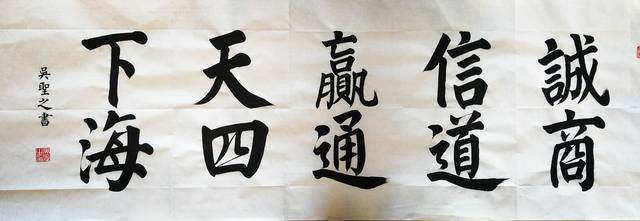 誠信贏天下
商道通四海
吳聖之書